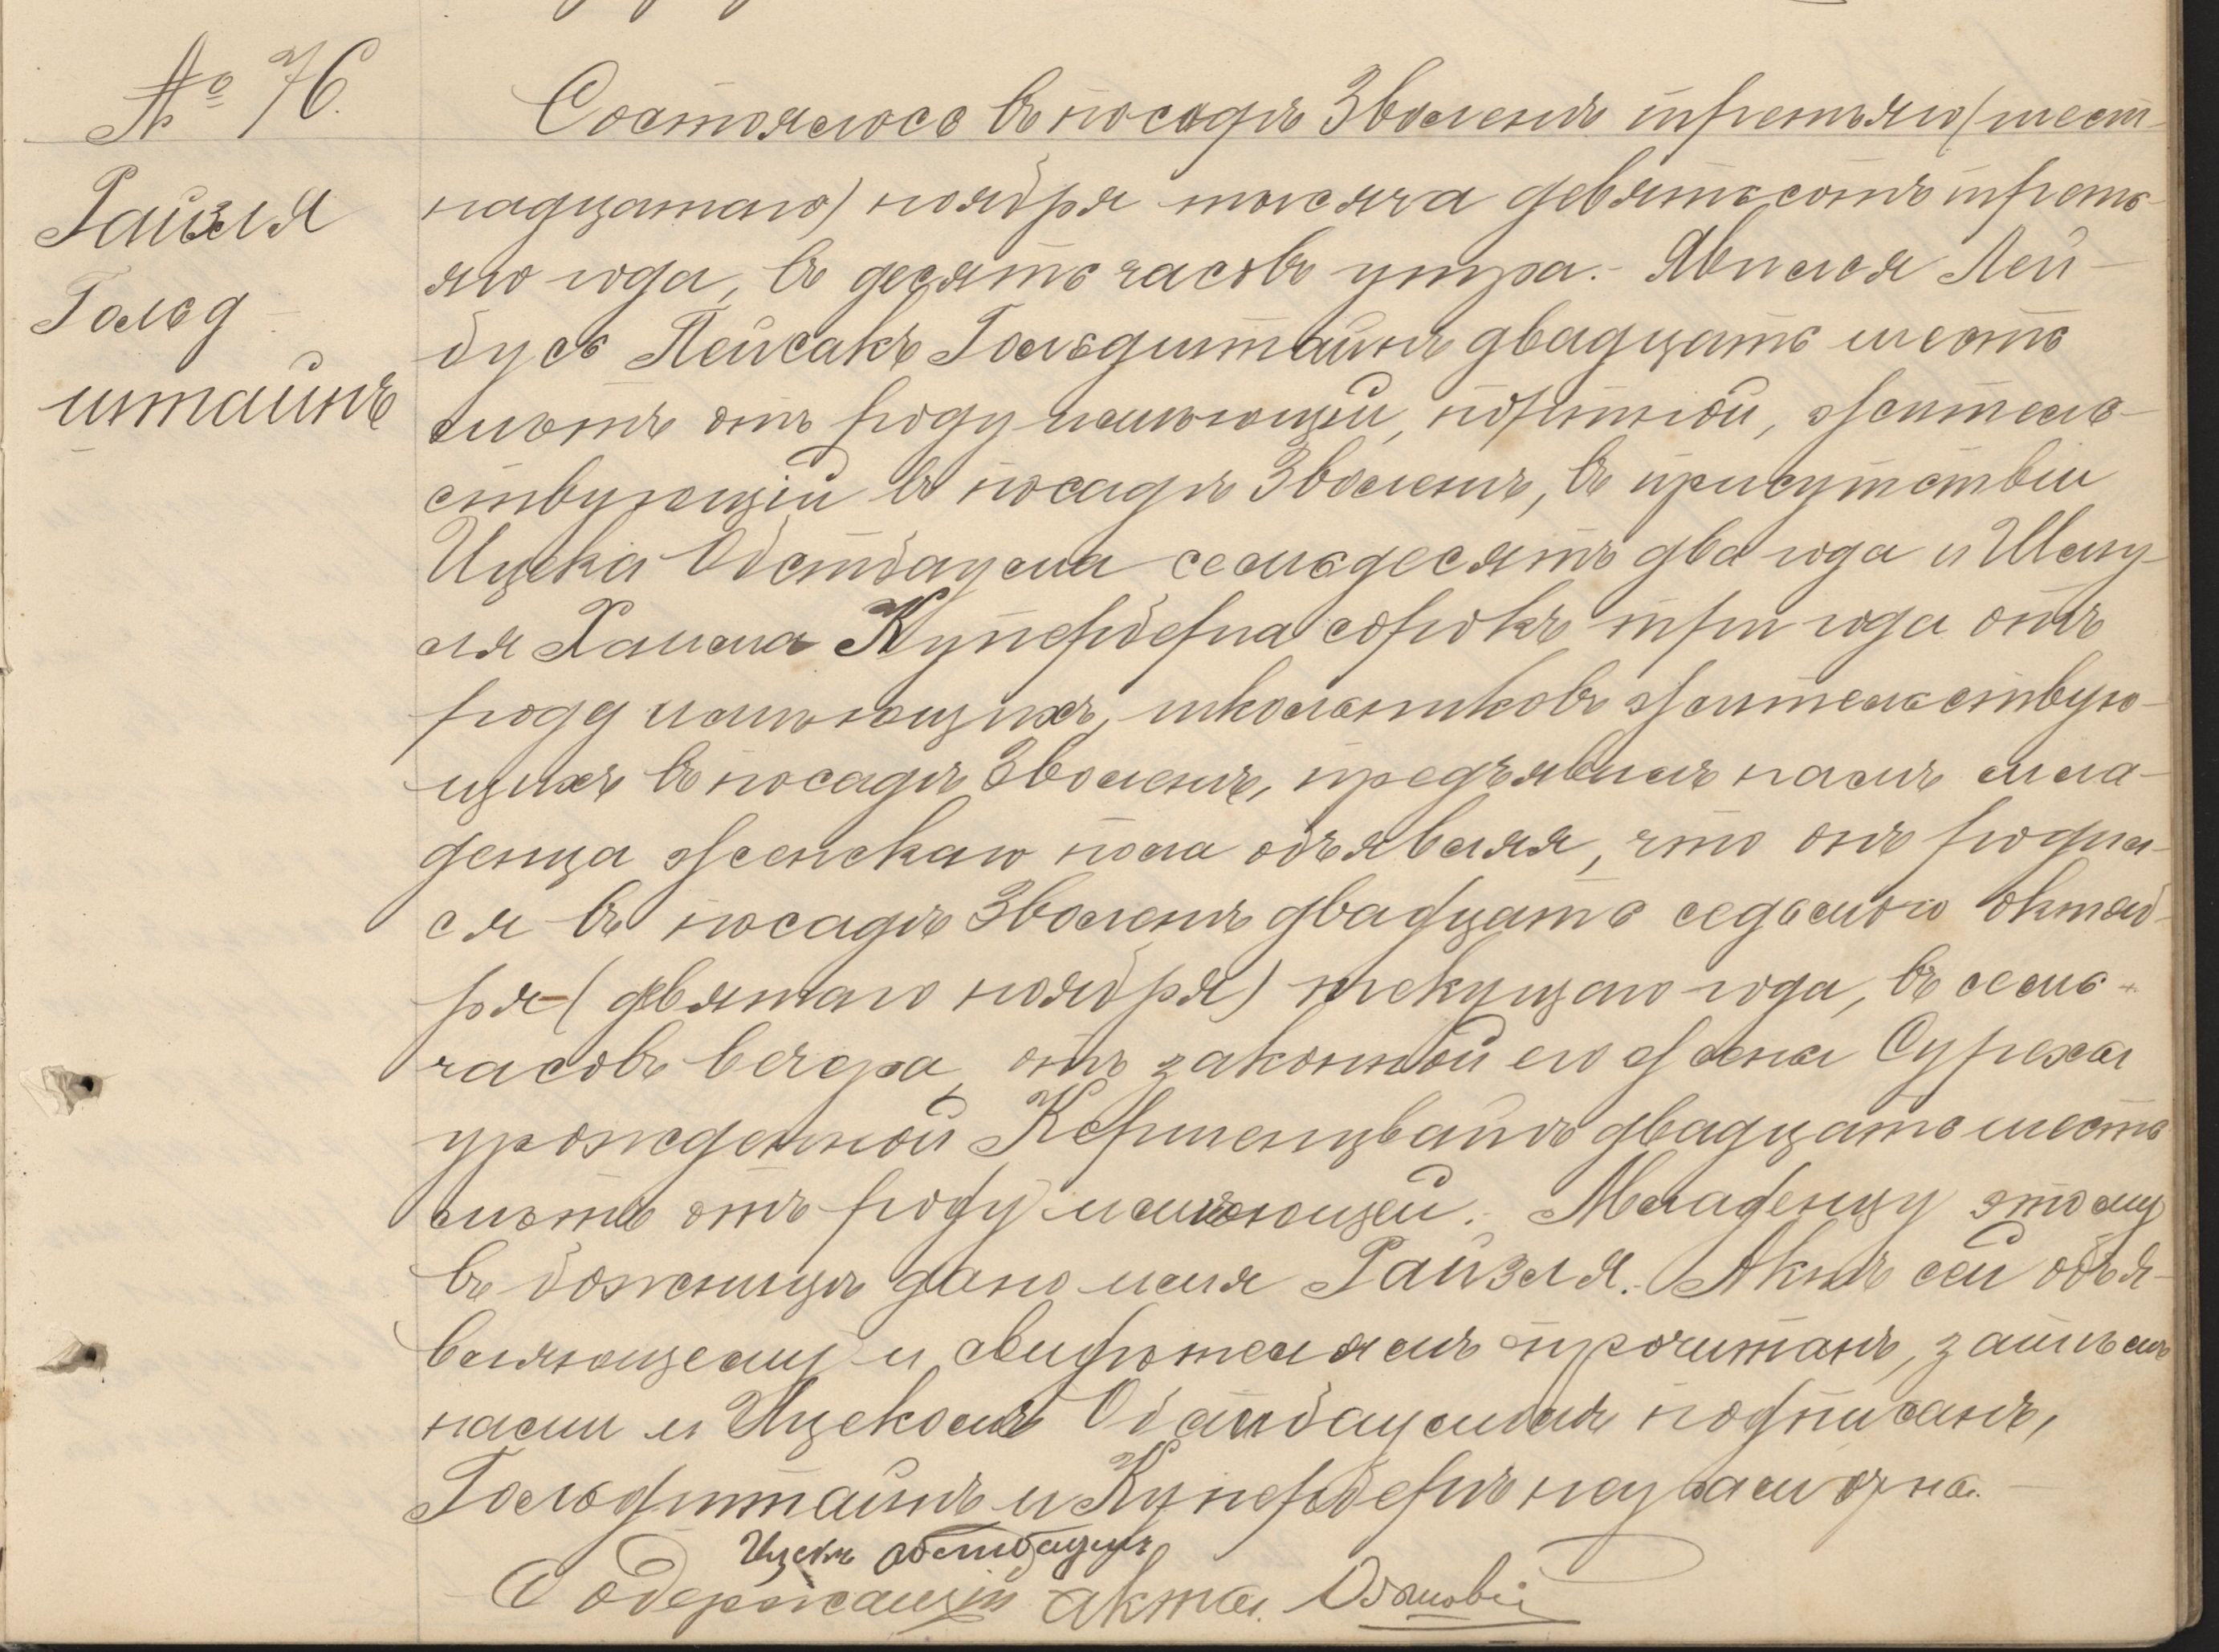 № 76.
Райзля
Гольд-
штайнъ
Состоялось въ посадѣ Зволенѣ третьяго (шест-
надцатаго) ноября тысяча девятьсотъ треть-
яго года, въ десять часовъ утра. - Явился Лей-
бусь Пейсакъ Гольдштайнъ двадцать шесть
лѣтъ отъ роду имѣющій, портной, житель-
ствующій въ посадѣ Зволенѣ, въ присутствіи
Ицека Обстбаума семьдесятъ два года и Шму-
ля Хаима Куперберга сорокъ три года отъ
роду имѣющихъ, школьниковъ жительствую-
щихъ въ посадѣ Зволенѣ, предъявилъ намъ мла-
денца женскаго пола объявляя, что онъ родил-
ся въ посадѣ Зволенѣ двадцать седьмого октяб-
ря (девятаго ноября) текущаго года, въ семь
часовъ вечера, отъ законной его жены Сурехи
урожденной Кершенцвайгъ двадцать шесть
лѣтъ отъ роду имѣющей. Младенцу этому
въ божницѣ дано имя Райзля. Актъ сей объя-
вляющему и свидѣтелямъ прочитанъ, затѣмъ
нами и Ицекомъ Обстбаумомъ подписанъ,
Гольдштайнъ и Купербергъ неграмотны. -
Ицекъ Обстбаумъ
Содержащій акты.